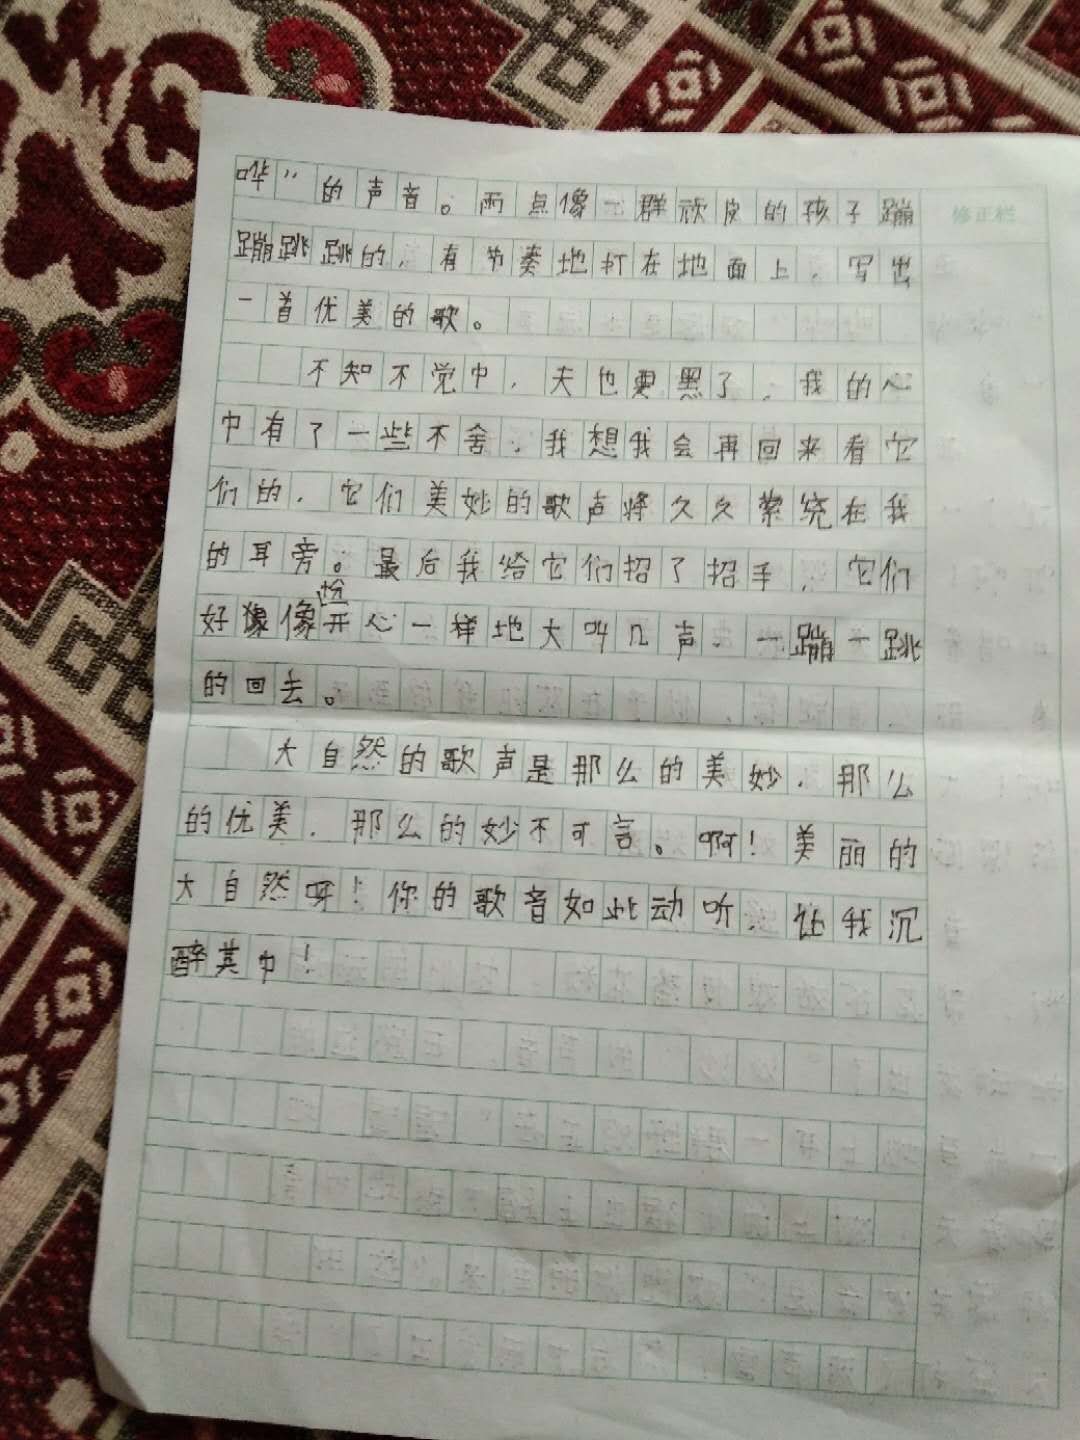 哗”的声音。雨点像一群顽皮的孩子蹦
修正栏
蹦跳跳的，有节奏地打在地面上，写出
一首优美的歌。
不知不觉中，天也更黑了，我的心
中有了一些不舍，我想我会再回来看它
们的，它们美妙的歌声将久久萦绕在我
的耳旁。最后我给它们招了招手，它们
好像像开心一样地大叫几声，一蹦一跳
的回去。
大自然的歌声是那么的美妙，那么
的优美，那么的妙不可言。啊！美丽的
大自然呀！你的歌音如此动听，让我沉
醉其中！